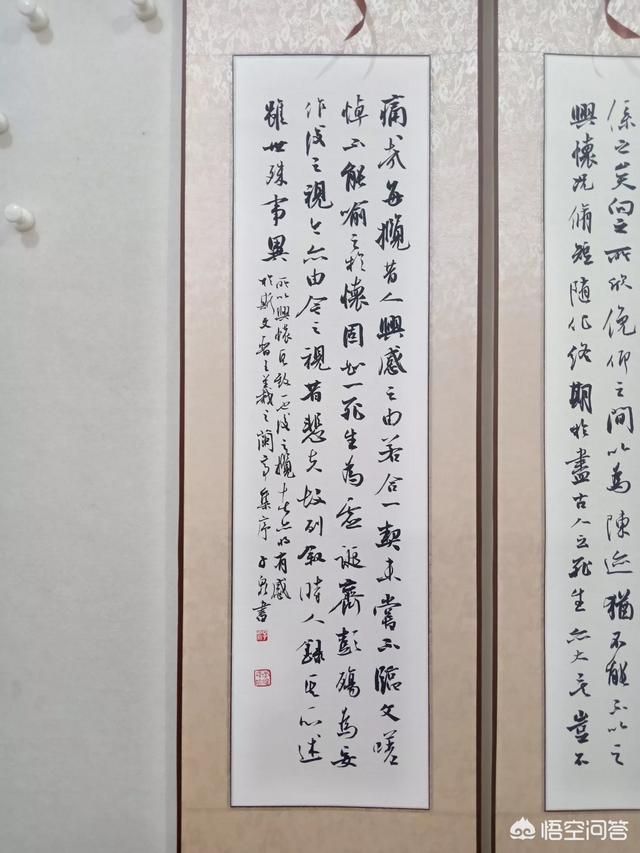 係之矣向之所欣俛仰之間以為陳迹猶不能不以之
興懷況脩短隨化終期於盡古人云死生亦大矣豈不
痛哉每攬昔人興感之由若合一契未嘗不臨文嗟
悼不能喻之於懷固知一死生為虛誕齊彭殤為妄
作後之視今亦由今之視昔悲夫故列叙時人錄其所述
雖世殊事異
所以興懷其致一也後之攬者亦将有感
於斯文晉王羲之蘭亭集序 書
悟空问答